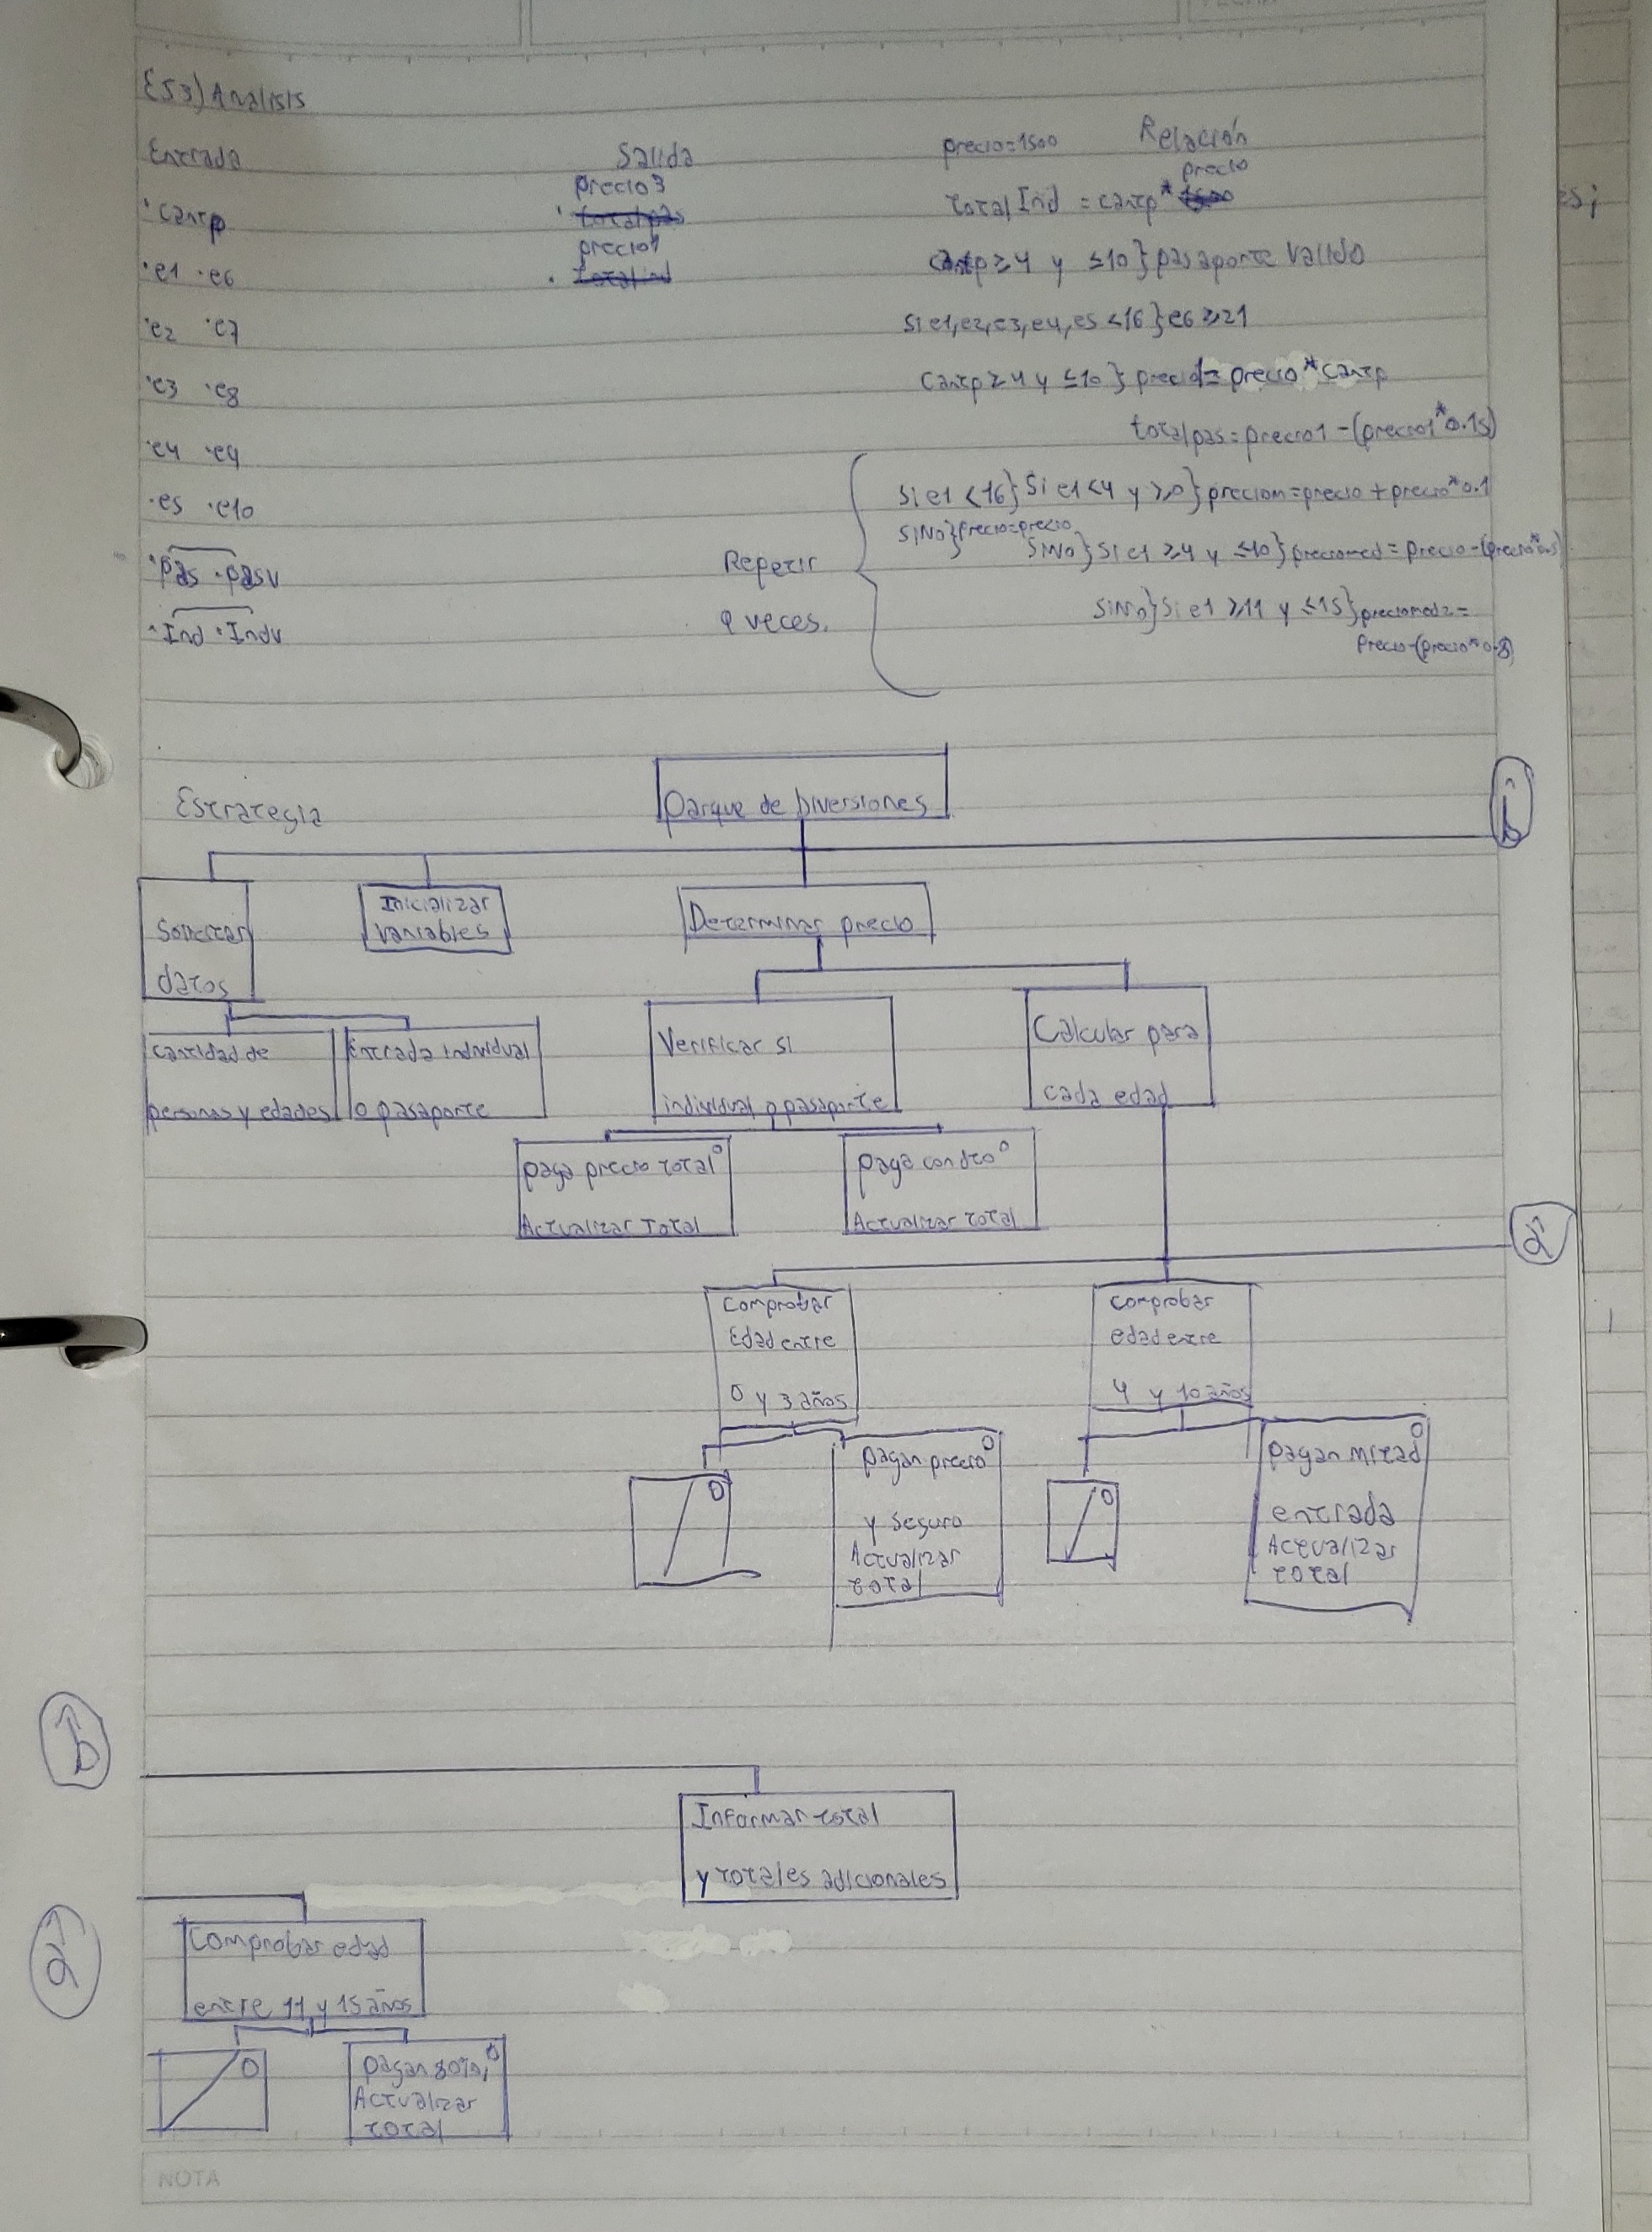 ES3) Analisis
Entrada
Salida
precio=1500
Relación
·cantp
precio3
precio1
total Ind = cantp*
precio
·e1 ·e6
cantp ≥4 y ≤10} pasaporte Valido
·e2 ·e7
Si e1,e2,e3,e4,e5 <16} e6 ≥21
·e3 ·e8
Cantp ≥4 y ≤10} precio1= precio*cantp
·e4
totalpas=precio1-(precio1*0.15)
·e5 ·e10
Si e1 <16} Si e1<4 y ≥0} preciom=precio+precio*0.1
SiNo} precio=precio
SiNo} Si e1 ≥4 y ≤10} preciomed=precio-
·pas ·pasv
Repetir
9 veces.
SiNo} Si e1 ≥11 y ≤15} preciomed2=
·Ind ·Indv
Estrategia
Parque de Diversiones
b
Solicitar
datos
Inicializar
Variables
Determinar precio
Cantidad de
personas y edades
Entrada individual
o pasaporte
Verificar si
individual o pasaporte
Calcular para
cada edad
Paga precio total
Actualizar Total
Paga con dto
Actualizar total
a
Comprobar
Edad entre
0 y 3 años
Comprobar
edad entre
4 y 10 años
Pagan precio
y seguro
Actualizar
total
Pagan mitad
entrada
Actualizar
total
b
Informar total
y totales adicionales
a
Comprobar edad
entre 11 y 15 años
Pagan 80%,
Actualizar
total
NOTA